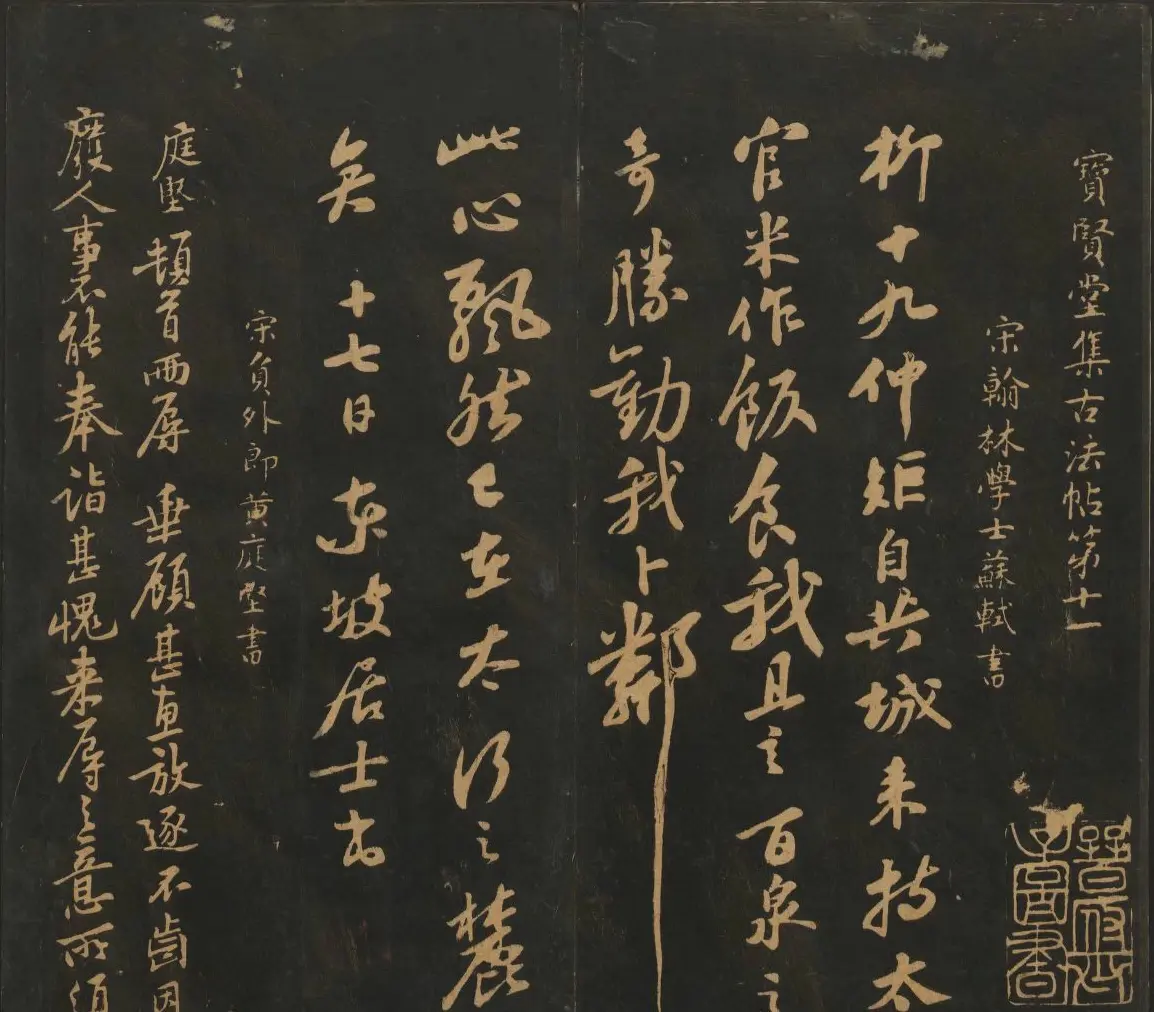 寶賢堂集古法帖第十一
宋翰林學士蘇軾書
柳十九仲矩自共城来持太
官米作飯食我且言百泉之
奇勝勸我卜鄰
此心飄然已在太行之麓
矣 十七日 東坡居士書
宋員外郎黃庭堅書
庭堅頓首兩辱垂顧甚惠放逐不齒因
廢人事不能奉詣甚愧来辱之意所須